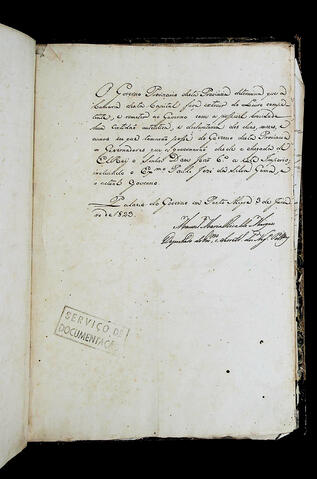 O Governo Provisorio desta Provincia determina que a
Camara desta Capital faça extrair do Livro compe
tente, e remeter ao Governo com a possivel brevidade
huma Certidão autentica, e declaratoria dos dias, mezes, e
annos em que tomarão posse do Governo desta Provincia
os Governadores que a governarão desde a chegada de
El Rei o Senhor Dom João 6º a este Imperio,
incluindo o Exmo Paulo José da Silva Gama, e
o actual Governo.
Palacio do Governo em Porto Alegre 3 de
ro de 1823.
Manoel Maria
Deputado
SERVIÇO DE
DOCUMENTAÇÃO